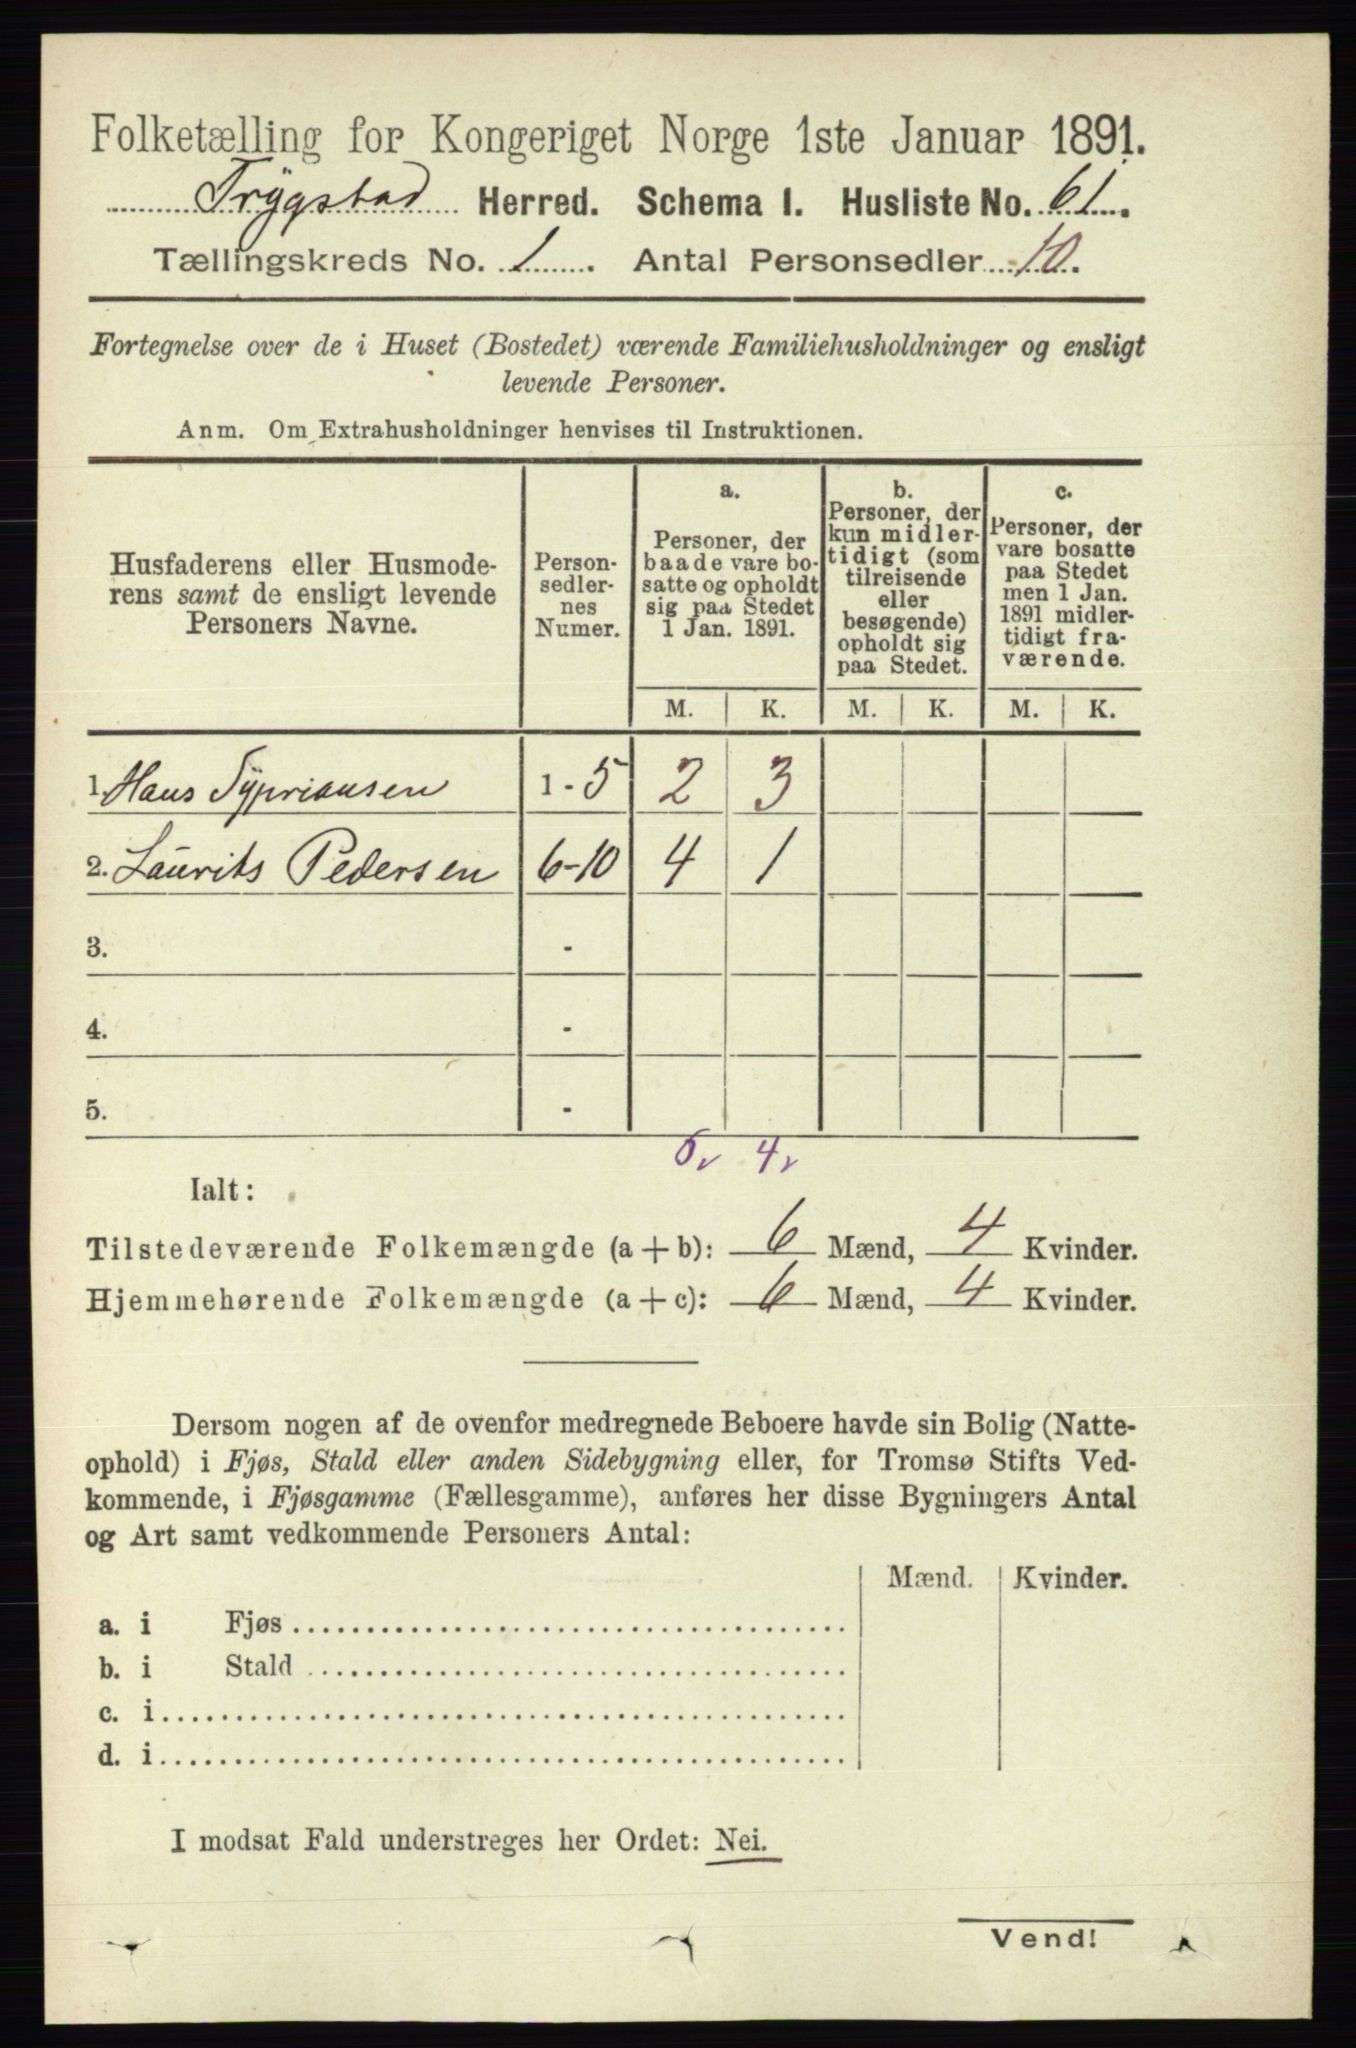 Folketælling for Kongeriget Norge 1ste Januar 1891.
Trygstad Herred. Schema I. Husliste No. 61.
Tællingskreds No. 1. Antal Personsedler 10.
Fortegnelse over de i Huset (Bostedet) værende Familiehusholdninger og ensligt
levende Personer.
Anm. Om Extrahusholdninger henvises til Instruktionen.
Husfaderens eller Husmode-
rens samt de ensligt levende
Personers Navne.
Person-
sedler-
nes
Numer.
a.
Personer, der
baade vare bo-
satte og opholdt
sig paa Stedet
1 Jan. 1891.
b.
Personer, der
kun midler-
tidigt (som
tilreisende
eller
besøgende)
opholdt sig
paa Stedet.
c.
Personer, der
vare bosatte
paa Stedet
men 1 Jan.
1891 midler-
tidigt fra-
værende.
M. K. M. K. M. K.
1. Hans Sypriansen 1 - 5 2 3
2. Laurits Pedersen 6-10 4 1
3. -
4. -
5. -
6 4
Ialt:
Tilstedeværende Folkemængde (a + b): 6 Mænd, 4 Kvinder.
Hjemmehørende Folkemængde (a + c): 6 Mænd, 4 Kvinder.
Dersom nogen af de ovenfor medregnede Beboere havde sin Bolig (Natte-
ophold) i Fjøs, Stald eller anden Sidebygning eller, for Tromsø Stifts Ved-
kommende, i Fjøsgamme (Fællesgamme), anføres her disse Bygningers Antal
og Art samt vedkommende Personers Antal:
Mænd. Kvinder.
a. i Fjøs
b. i Stald
c. i
d. i
I modsat Fald understreges her Ordet: Nei.
Vend!